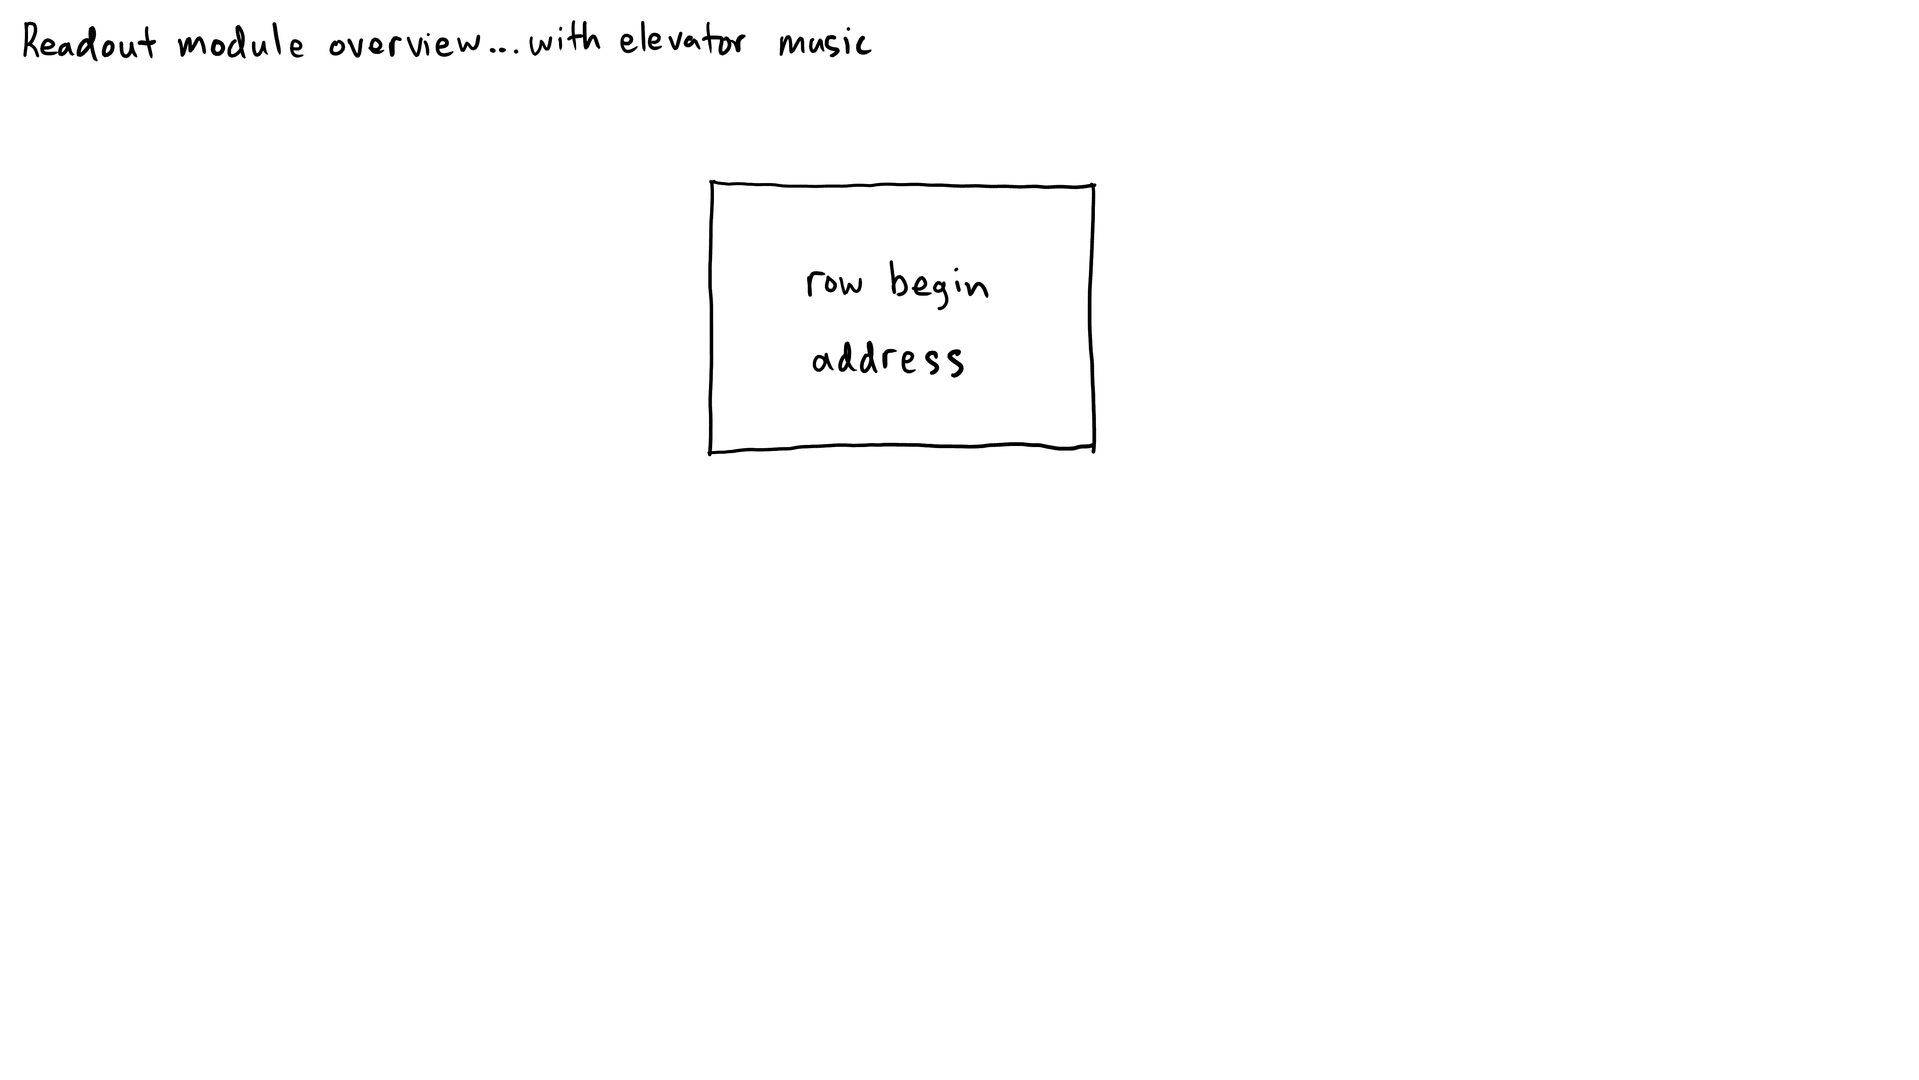 Readout module overview...with elevator music
row begin
address